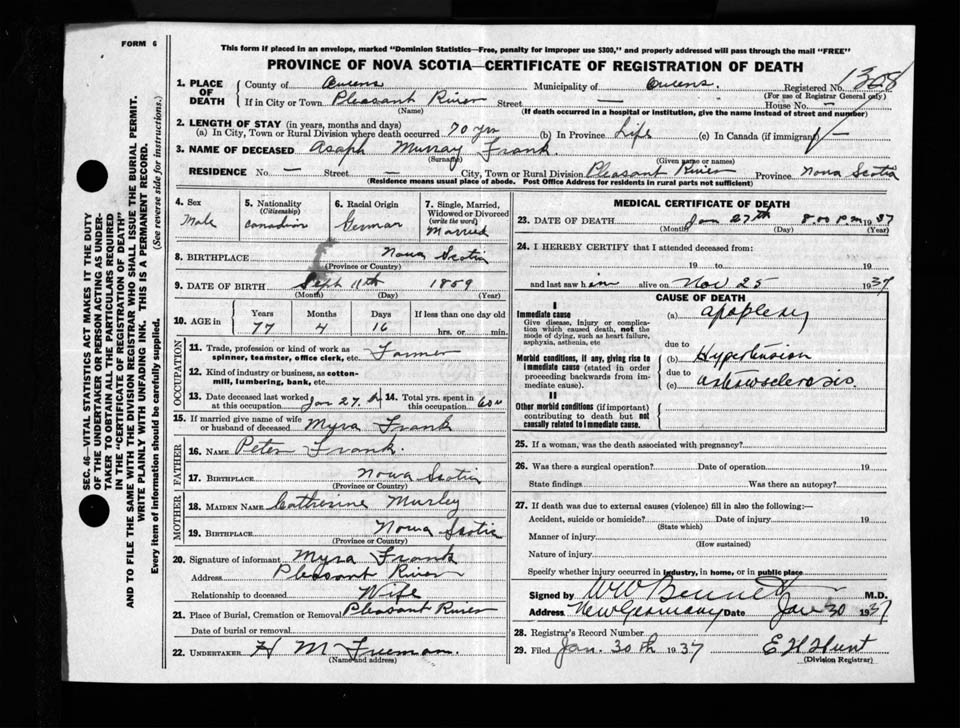 FORM 6
This form if placed in an envelope, marked "Dominion Statistics—Free, penalty for improper use $300," and properly addressed will pass through the mail "FREE"
PROVINCE OF NOVA SCOTIA—CERTIFICATE OF REGISTRATION OF DEATH
1. PLACE OF DEATH County of Queens Municipality of Queens. Registered No.
(For use of Registrar General only)
If in City or Town Pleasant River Street — House No. —
(Name) (If death occurred in a hospital or institution, give the name instead of street and number)
2. LENGTH OF STAY (in years, months and days)
(a) In City, Town or Rural Division where death occurred 70 yrs (b) In Province Life (c) In Canada (if immigrant) —
3. NAME OF DECEASED Asaph Murray Frank
(Surname) (Given name or names)
RESIDENCE No. — Street — City, Town or Rural Division Pleasant River Province Nova Scotia
(Residence means usual place of abode. Post Office Address for residents in rural parts not sufficient)
4. Sex Male
5. Nationality (Citizenship) Canadian
6. Racial Origin German
7. Single, Married, Widowed or Divorced (write the word) Married
8. BIRTHPLACE Nova Scotia
(Province or Country)
9. DATE OF BIRTH Sept 11th 1859
(Month) (Day) (Year)
10. AGE in Years Months Days If less than one day old
77 4 16 hrs. or min.
OCCUPATION
11. Trade, profession or kind of work as spinner, teamster, office clerk, etc. Farmer
12. Kind of industry or business, as cotton-mill, lumbering, bank, etc.
13. Date deceased last worked at this occupation Jan 27.
14. Total yrs. spent in this occupation 60
15. If married give name of wife or husband of deceased Myra Frank
FATHER
16. NAME Peter Frank.
17. BIRTHPLACE Nova Scotia
(Province or Country)
MOTHER
18. MAIDEN NAME Catherine Murley
19. BIRTHPLACE Nova Scotia
(Province or Country)
20. Signature of informant Myra Frank
Address Pleasant River
Relationship to deceased Wife
21. Place of Burial, Cremation or Removal Pleasant River
Date of burial or removal
22. UNDERTAKER H M Freeman.
(Name and address)
MEDICAL CERTIFICATE OF DEATH
23. DATE OF DEATH Jan 27th 8.00 P.M 1937
(Month) (Day) (Year)
24. I HEREBY CERTIFY that I attended deceased from:
19 to 19
and last saw him alive on Nov 25 1937
CAUSE OF DEATH
I
Immediate cause
Give disease, injury or complication which caused death, not the mode of dying, such as heart failure, asphyxia, asthenia, etc
(a) apoplexy
due to
Morbid conditions, if any, giving rise to immediate cause (stated in order proceeding backwards from immediate cause).
(b) Hypertension
due to
(c) arteriosclerosis.
II
Other morbid conditions (if important) contributing to death but not causally related to immediate cause.
25. If a woman, was the death associated with pregnancy?
26. Was there a surgical operation? Date of operation 19
State findings Was there an autopsy?
27. If death was due to external causes (violence) fill in also the following:—
Accident, suicide or homicide? Date of injury 19
(State which)
Manner of injury
(How sustained)
Nature of injury
Specify whether injury occurred in industry, in home, or in public place
Signed by W W Bennett M.D.
Address New Germany Date Jan 30 1937
28. Registrar's Record Number
29. Filed Jan. 30th 1937 E H Hunt
(Division Registrar)
SEC. 46—VITAL STATISTICS ACT MAKES IT THE DUTY
OF THE UNDERTAKER OR PERSON ACTING AS UNDER-
TAKER TO OBTAIN ALL THE PARTICULARS REQUIRED
IN THE "CERTIFICATE OF REGISTRATION OF DEATH"
AND TO FILE THE SAME WITH THE DIVISION REGISTRAR WHO SHALL ISSUE THE BURIAL PERMIT.
WRITE PLAINLY WITH UNFADING INK. THIS IS A PERMANENT RECORD.
Every item of information should be carefully supplied. (See reverse side for instructions.)